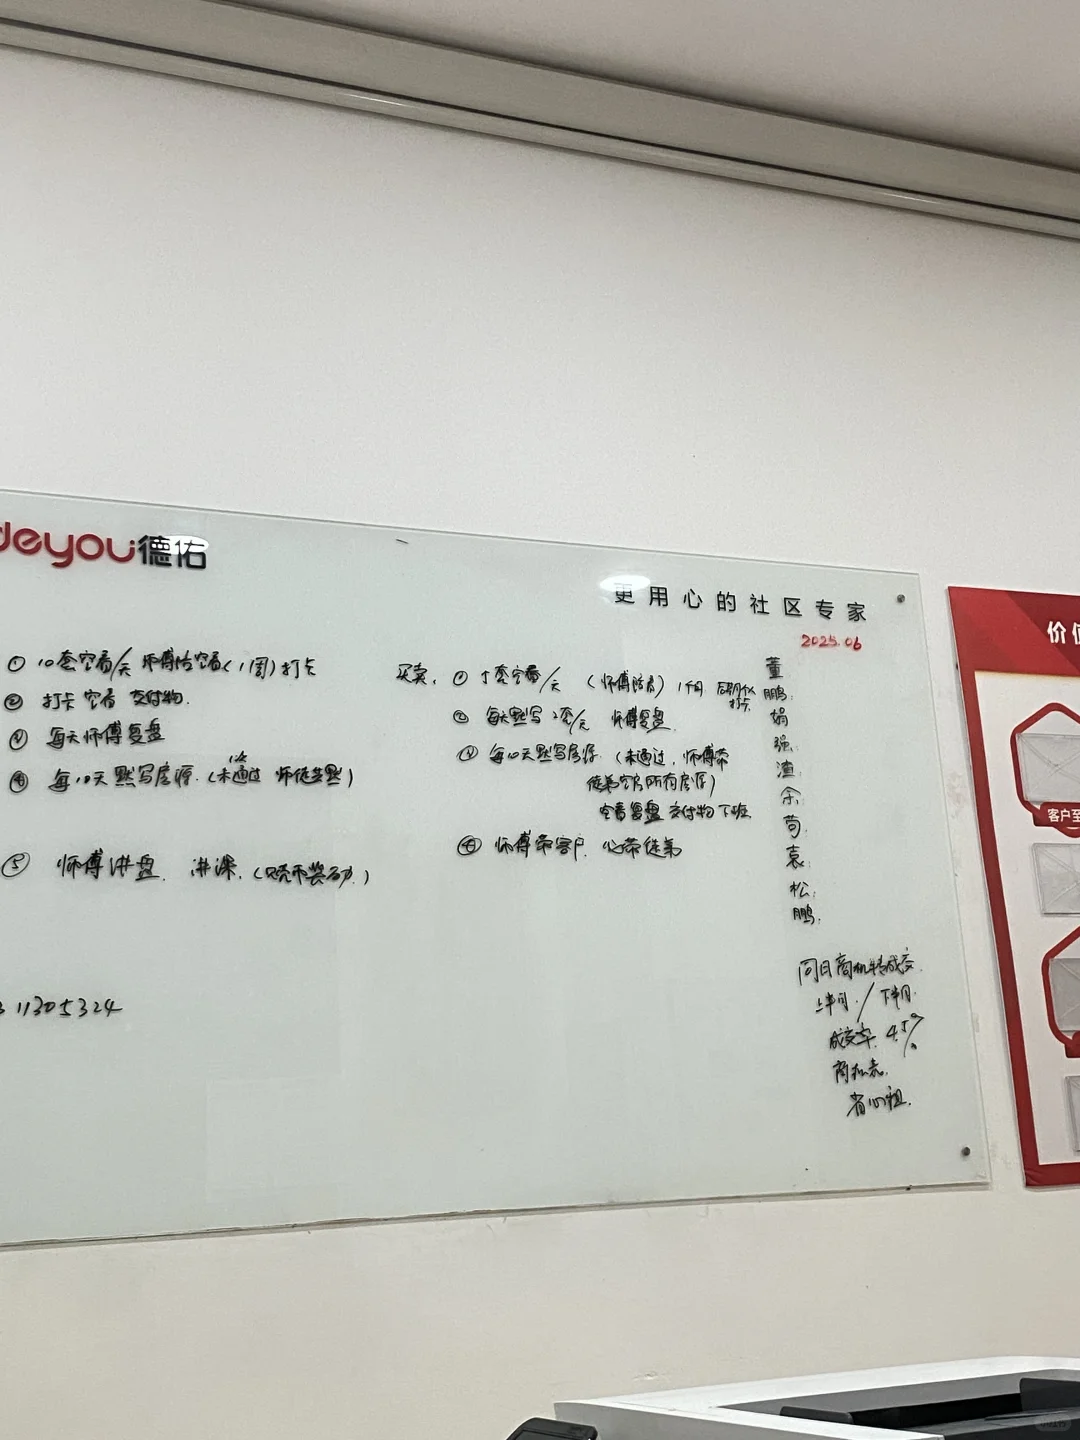 deyou德佑
更用心的社区专家
2025.06
① 10套空看/天 师傅陪空看(1周)打卡
② 打卡 空看 交付物.
③ 每天师傅复盘
④ 每10天默写房源.(未通过 师徒共默)
1次
⑤ 师傅讲盘. 讲课.(贝壳币奖励.)
11305324
买卖: ① 5套空看/天 (师傅陪看) 1个月
打卡.
② 每天默写2套/天 师傅复盘.
③ 每10天默写房源. (未通过, 师傅带
徒弟空看所有房源)
空看复盘 交付物下班
④ 师傅带客户 必带徒弟
董
鹏:
娟
强:
渣:
余
苟:
袁:
松:
鹏:
同日商机转成交.
上半月. / 下半月.
成交率. 4.5%
商机表.
省心租.
价值
客户至